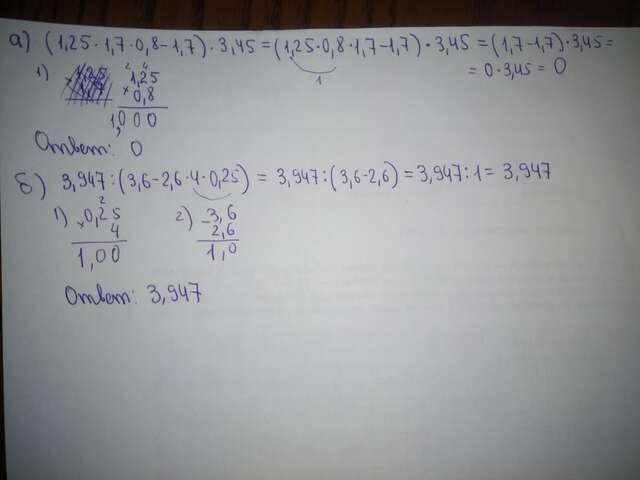 а) (1,25 · 1,7 · 0,8 - 1,7) · 3,45 = (1,25 · 0,8 · 1,7 - 1,7) · 3,45 = (1,7 - 1,7) · 3,45 =
1
= 0 · 3,45 = 0
1)
2 4
1,25
× 0,8
1,000
Ответ: 0
б) 3,947 : (3,6 - 2,6 · 4 · 0,25) = 3,947 : (3,6 - 2,6) = 3,947 : 1 = 3,947
1) 2
× 0,25
4
1,00
2) - 3,6
2,6
1,0
Ответ: 3,947